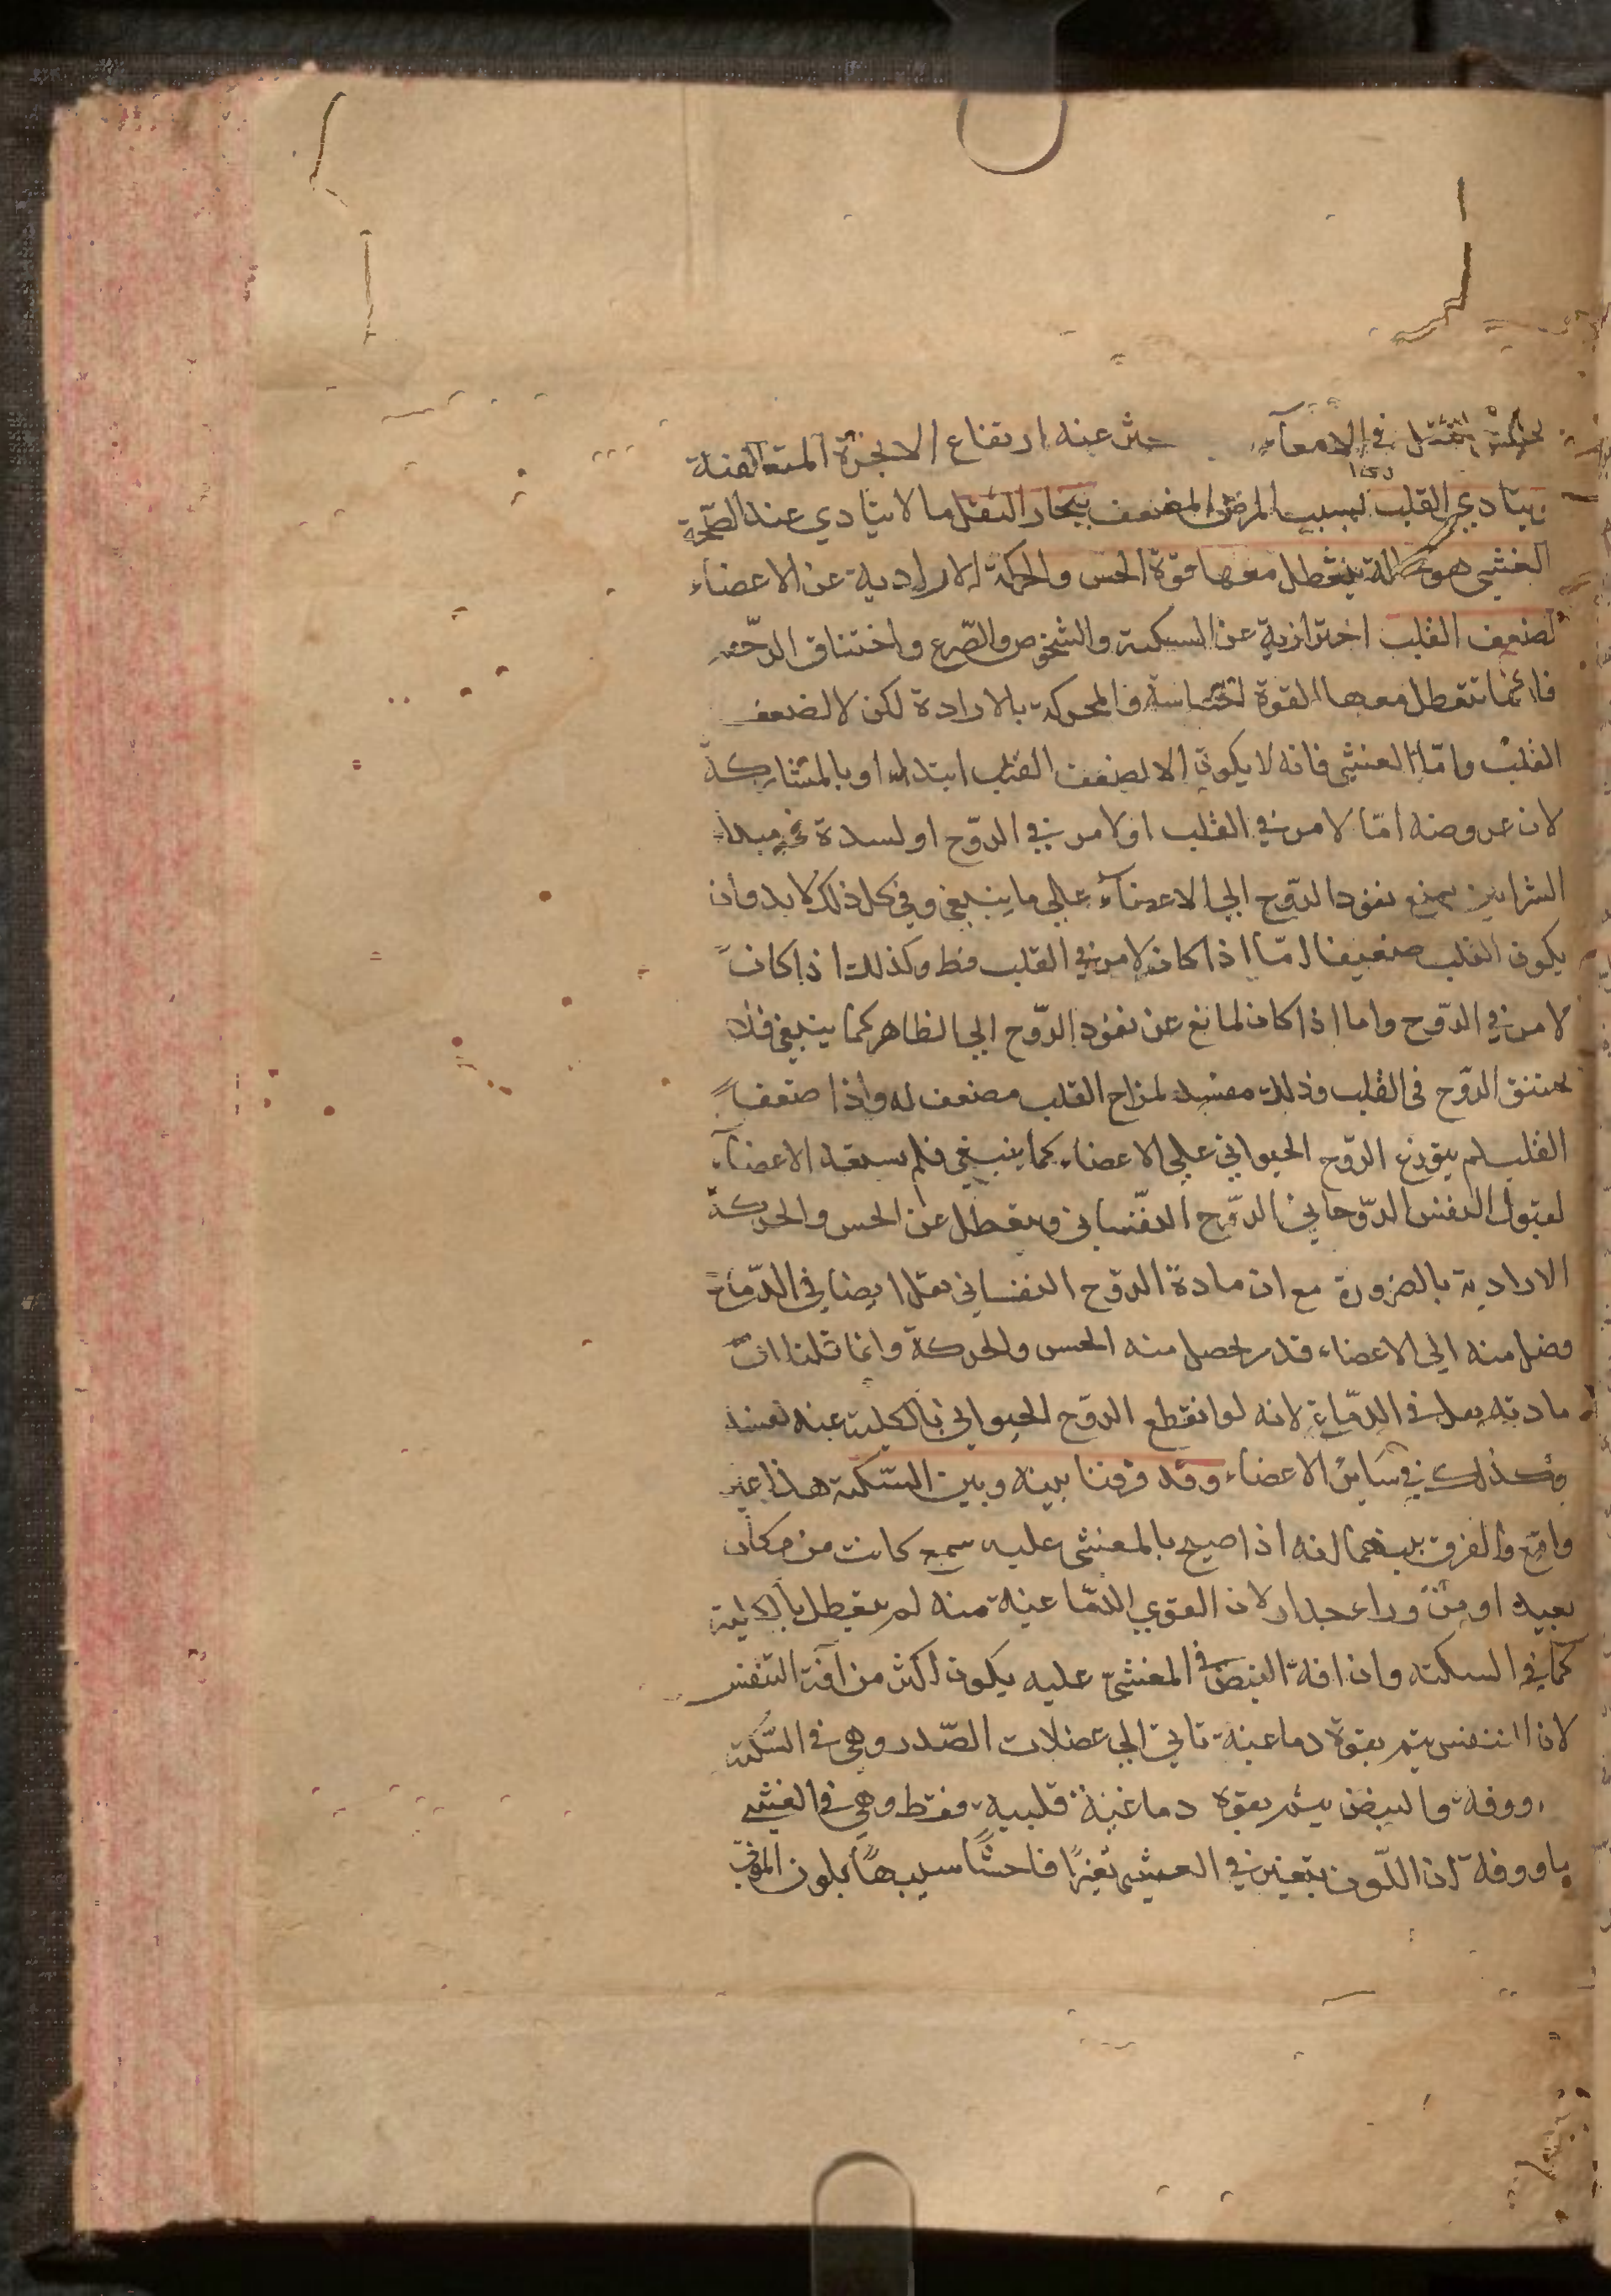 الثفل في الامعآء حدث عنه ارتفاع الابخرة المتعفنة
يتادي القلب بسبب المرض المضعف ببخار الثفل ما لا يتادي عند الصحة
الغشي هو حالة يتعطل معها قوة الحس والحركة الارادية عن الاعضاء
لضعف القلب احترازية عن السكتة والشخوص والصّرع واختناق الرّحم
فانمّا تتعطل معها القوة الحسّاسة والمحركة بالارادة لكن لا لضعف
القلب وامّا الغشي فانه لا يكون الا لضعف القلب ابتداء او بالمشاركة
لان عروضه امّا لامر في القلب او لامر في الرّوح او لسدة في مبدا
الشرايين يمنع نفوذ الرّوح الي الاعضآء علي ما ينبغي وفي كل ذلك لا بد وان
يكون القلب ضعيفا امّا اذا كان لامر في القلب فظ وكذلك اذا كان
لامر في الرّوح واما اذا كان لمانع عن نفوذ الرّوح الي الظاهر كما ينبغي فلا
يختنق الرّوح في القلب وذلك مفسد لمزاج القلب مضعف له واذا ضعف
القلب لم يتوزع الرّوح الحيواني علي الاعضاء كما ينبغي فلم يستعد الاعضآء
لقبول النفس الرّوحاني الرّوح النفّساني ويتعطل عن الحس والحركة
الارادية بالضرورة مع ان مادة الروح النفساني يقل ايضا في الدّماغ
فضل منه الي الاعضاء قدر يحصل منه الحس والحركة وانما قلنا ان
مادته يقل في الدمّاغ لانه لو انقطع الروح الحيواني بالكلية عنه لفسد
وكذلك في ساير الاعضاء وقد فرقنا بينه وبين السّكتة هذا غير
واقع والفرق بينهما انه اذا صيح بالمغشي عليه سمع كانت من مكان
بعيد او من وراء جدار لان القوي الدمّاغية منه لم يتعطل بالكلية
كما في السكته وان افة النبض في المغشي عليه يكون اكثر من آفة التنفس
لان التنفس يتم بقوة دماغية تاتي الي عضلات الصّدر وهي في السّكتة
مووفة والنبض يتم بقوة دماغية قلبية فقط وهي في الغشي
ماووفة لان اللّون يتغير في الغشي تغيرًا فاحشًا شبيهًا بلون الموتي